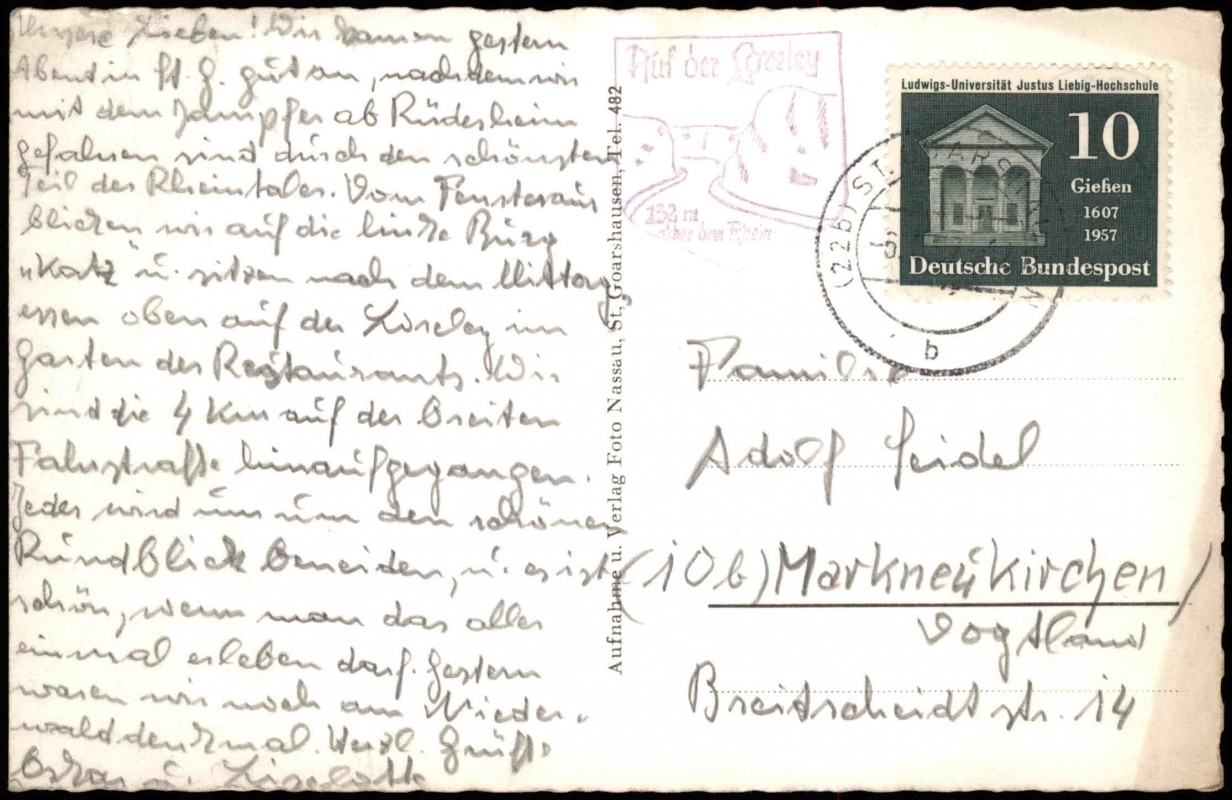 Unsere Lieben! Wir kamen gestern
Abend in St. G. gut an, nachdem wir
mit dem Dampfer ab Rüdesheim
gefahren sind durch den schönsten
Teil des Rheintales. Vom Fenster aus
blicken wir auf die Burg
„Katz" u. sitzen nach dem Mittag-
essen oben auf der Loreley im
Garten des Restaurants. Wir
sind die 4 km auf der breiten
Fahrstraße hinaufgegangen.
Jeder wird uns um den schönen
Rundblick beneiden, u. es ist
schön, wenn man das alles
einmal erleben darf. Gestern
waren wir noch am Nieder-
walddenkmal. Herzl. Grüße
Oskar u. Liselotte
Aufnahme u. Verlag Foto Nassau, St. Goarshausen, Tel. 482
Auf der Loreley
132 m
über dem Rhein
Ludwigs-Universität Justus Liebig-Hochschule
10
Gießen
1607
1957
Deutsche Bundespost
(22b) ST. GOARSHAUSEN
b
Familie
Adolf Seidel
(10b) Markneukirchen/
Vogtland
Breitscheidtstr. 14